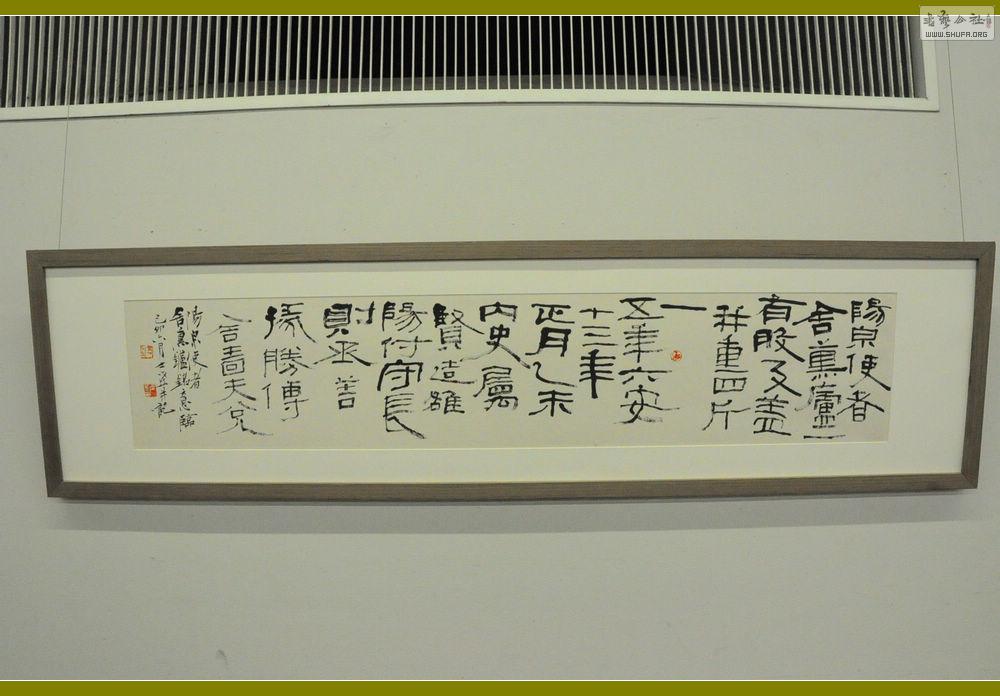 陽泉使者
舍熏廬一
有般及盖
并重四斤
一
五年六安
十三年
正月乙未
内史屬
賢造雒
陽付守長
則丞善
掾勝傳
舍嗇夫兌
陽泉使者
舍熏爐銘意臨
书艺公社
WWW.SHUFA.ORG